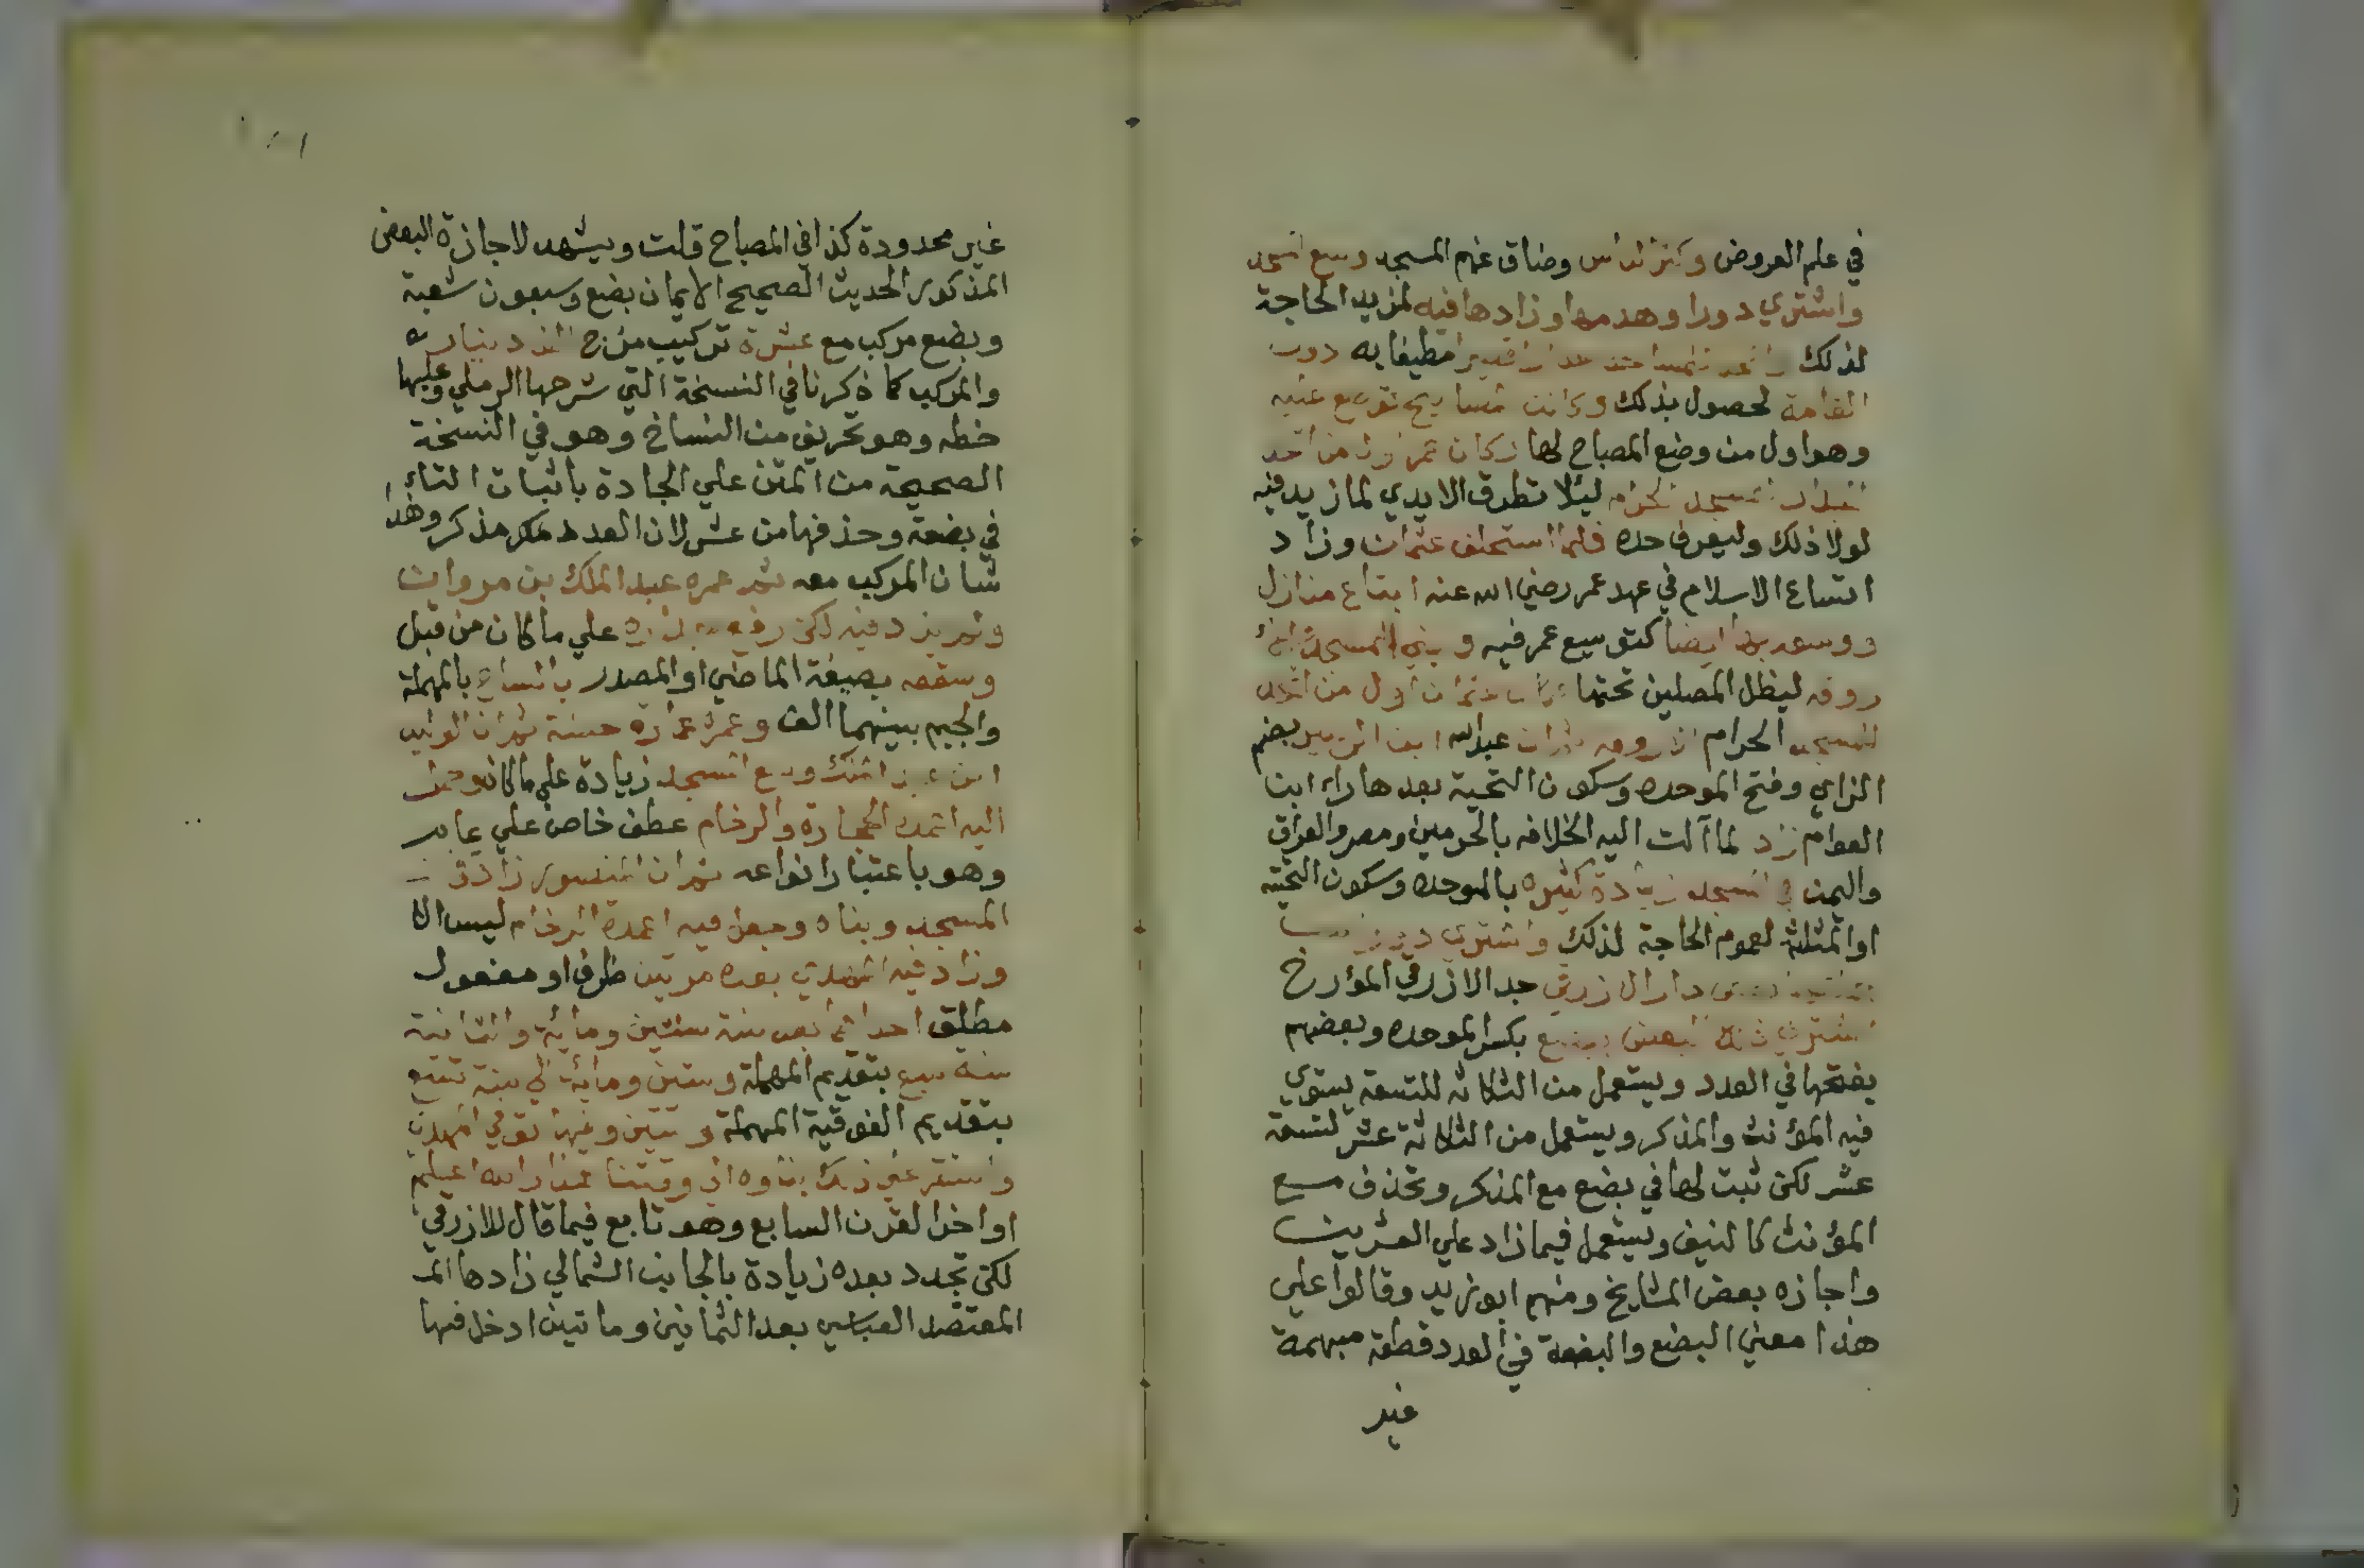 في علم العروض وكثر الناس وضاق عنهم المسجد وسع المسجد
واشتري دورا وهدمها وزادها فيه لمزيد الحاجة
لذلك واتخذ للمسجد جدارا قصيرا مطيفا به دون
القامة لحصول بذلك وكانت المصابيح توضع عليه
وهو اول من وضع المصباح لها وكان عمر اول من اتخذ
الجدار للمسجد الحرام ليئلا تطرق الايدي لما زيد فيه
لولا ذلك وليعرف حده فلما استخلف عثمان وزاد
اتساع الاسلام في عهد عمر رضي الله عنه ابتاع منازل
ووسعه بها ايضا كتوسيع عمر فيه وبني المسجد
روقه ليظل المصلين تحتها عثمان اول من اتخذ
للمسجد الحرام الاروقه عبدالله ابن الزبير بضم
الزاي وفتح الموحده وسكون التحية بعدها راء ابن
العوام زاد لما آلت اليه الخلافه بالحرمين ومصر والعراق
واليمن في المسجد زيادة كثيره بالموحده وسكون التحتيه
او المثلثة لعموم الحاجة لذلك واشتري دورا
دار الازرقي جد الازرقي المؤرخ
اشتري ذلك البعض ببضع بكسر الموحده وبعضهم
يفتحها في العدد ويستعمل من الثلاثه للتسعة يستوي
فيه المؤنث والمذكر ويستعمل من الثلاثة عشر لتسعة
عشر لكن ثبت لها في بضع مع المذكر وتحذف مع
المؤنث كالنيف ويستعمل فيما زاد علي العشرين
واجازه بعض المشايخ ومنهم ابو زيد وقالوا علي
هذا معني البضع والبضعة في العدد قطعة مبهمة
غير
غير محدودة كذا في المصباح قلت ويشهد لاجازة البعض
المذكور الحديث الصحيح الايمان بضع وسبعون شعبة
وبضع مركب مع عشرة تركيب مزج الف دينار
والمركب كما ذكرنا في النسخة التي شرحها الرملي وعليها
خطه وهو تحريف من النساخ وهو في النسخة
الصحيحة من المتن علي الجادة باثبات التاء
في بضعة وحذفها من عشر لان العدد مذكر وهذا
شان المركب معه ثم عمره عبد الملك بن مروان
ولم يزد فيه لكن رفع جداره علي ما كان من قبل
وسقفه بصيغة الماضي او المصدر بالساج بالمهملة
والجيم بينهما الف وعمره عمارة حسنة ثم ان الوليد
ابن عبد الملك وسع المسجد زيادة علي ما كان وحمل
اليه اعمدة الحجارة والرخام عطف خاص علي عام
وهو باعتبار انواعه ثم ان المنصور زاد في
المسجد وبناه وجعل فيه اعمدة الرخام ليس الا
وزاد فيه المهدي بعده مرتين ظرف او مفعول
مطلق احداهما بعد سنة ستين ومائة والثانية
سنة سبع بتقديم المهملة وستين ومائة الي سنة تسع
بتقديم الفوقية المهملة وستين وفيها توفي المهدي
واستقر علي ذلك بناوه الي وقتنا هذا والله اعلم
اواخر القرن السابع وهو تابع فيما قال للازرقي
لكن تجدد بعده زيادة بالجانب الشمالي زادها الم
المعتضد العباسي بعد الثمانين ومائتين ادخل فيها